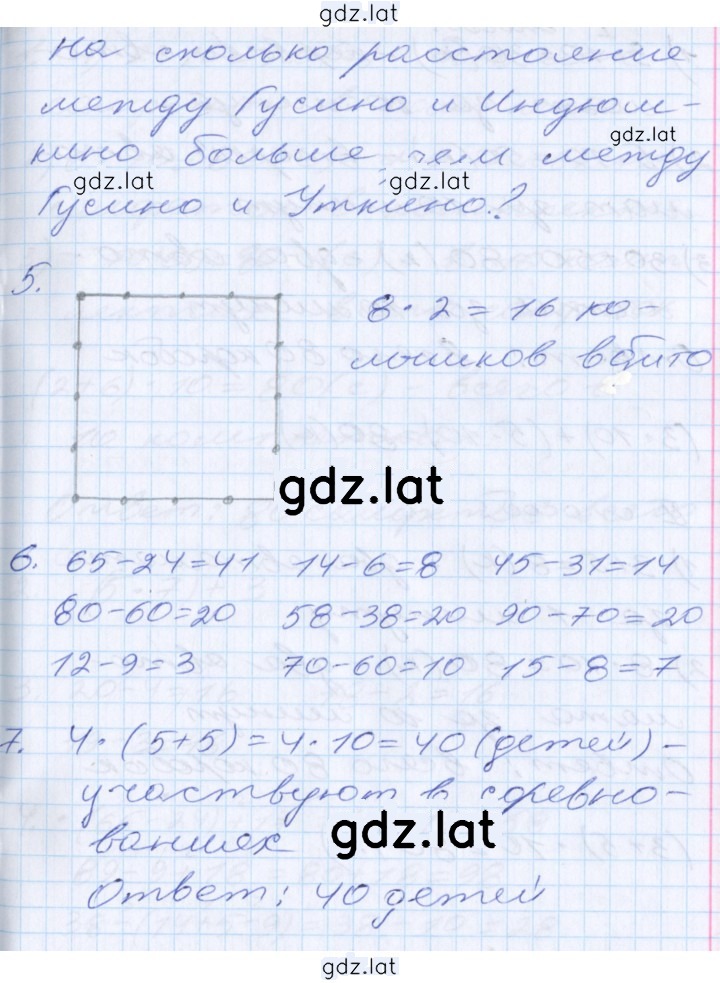 gdz.lat
На сколько расстояние
между Гусино и Индюш-
gdz.lat
кино больше, чем между
gdz.lat gdz.lat
Гусино и Уткино?
5.
8 · 2 = 16 ко-
лышков вбито
gdz.lat
6. 65-24=41 14-6=8 45-31=14
80-60=20 58-38=20 90-70=20
12-9=3 70-60=10 15-8=7
7. 4 · (5+5) = 4 · 10 = 40 (детей) -
участвуют в соревно-
ваниях
gdz.lat
Ответ: 40 детей
gdz.lat